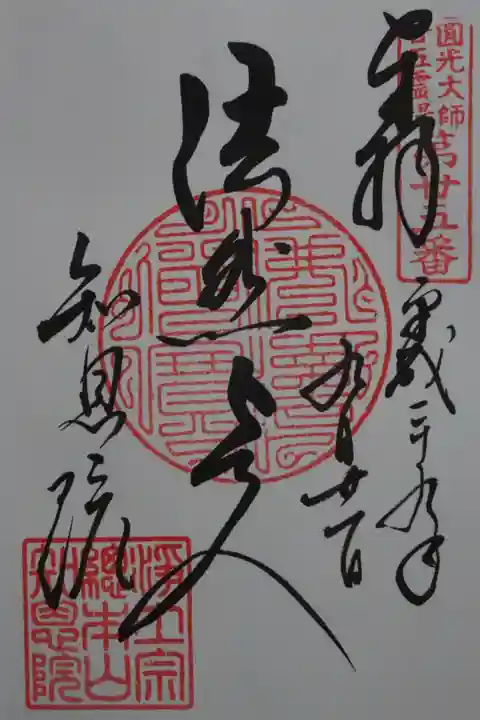 圓光大師
廿五霊場
第廿五番
奉拝
平成二十九年
九月廿一日
法然上人
知恩院
浄土宗
總本山
知恩院